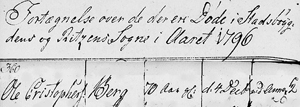 Fortægnelse over de der ere Døde i Stadsbÿg¬
dens og Ritzens Sogne i Aaret 1796
Ole Cristophers: Berg 70 Aar gl: d: 4 Feb: